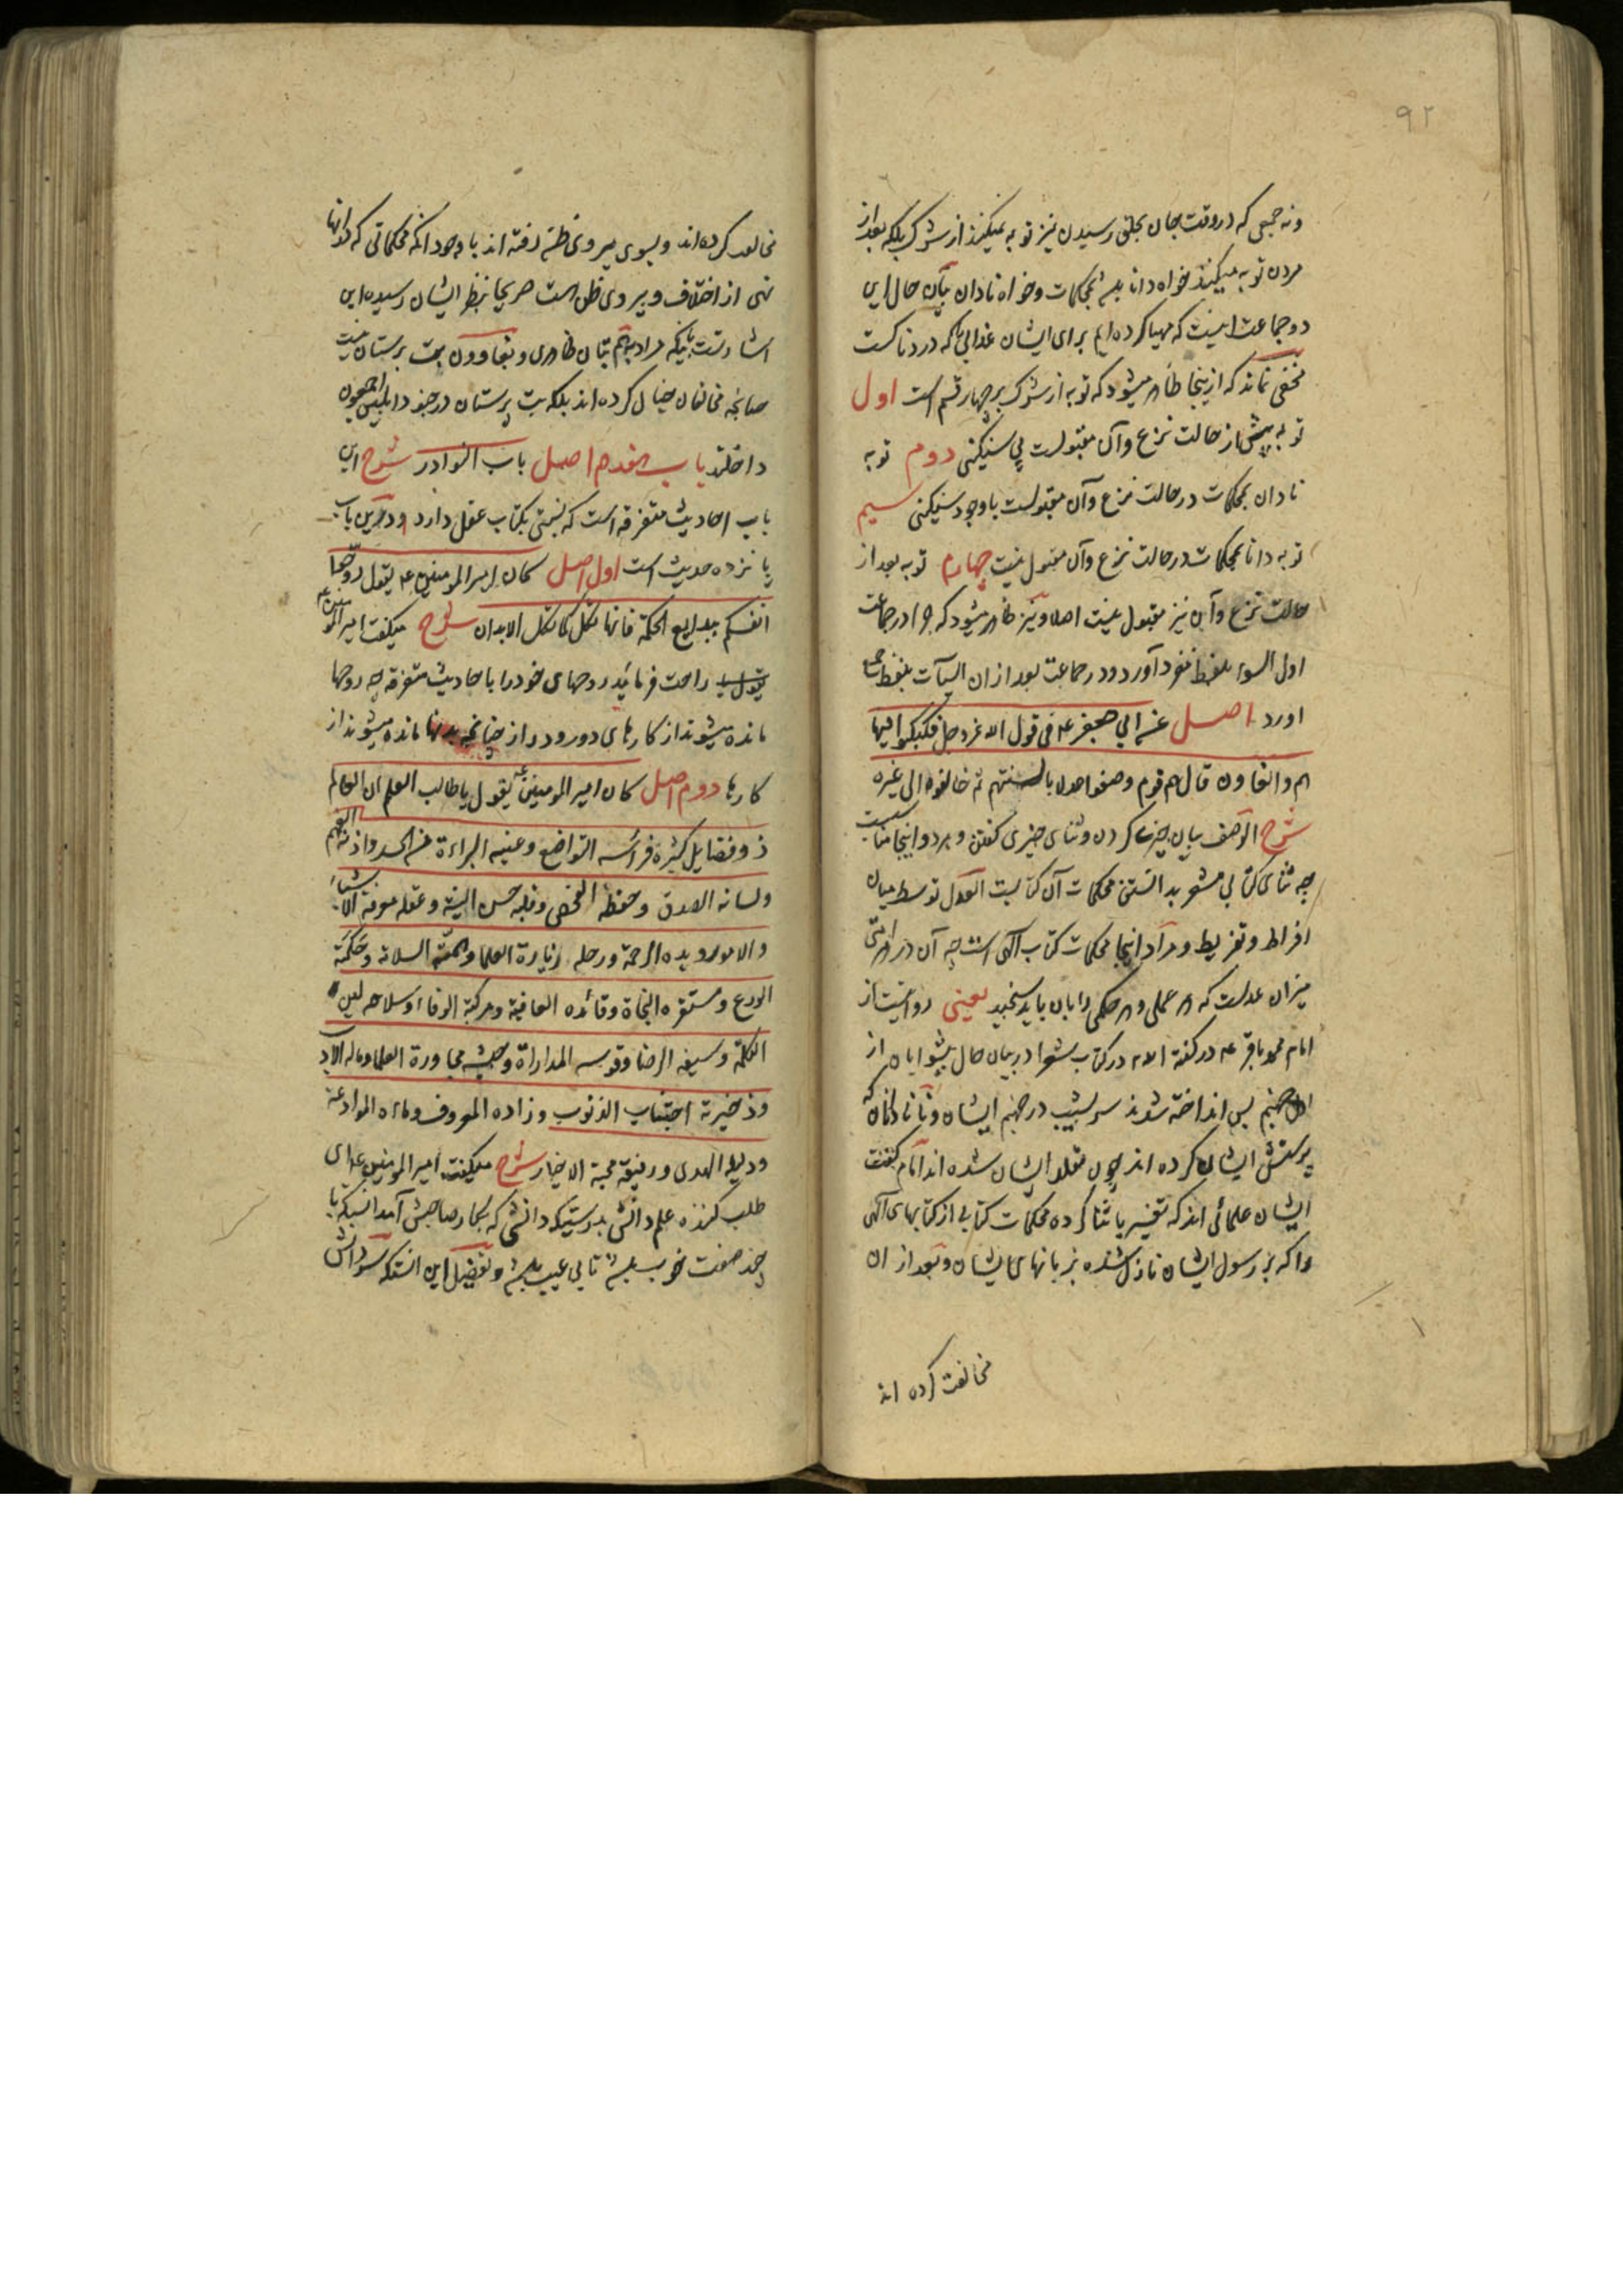 ۹۲
ونه جمعی که در وقت جان بحلق رسیدن نیز توبه نمیکنند از شرک بلکه بعد از
مردن توبه میکنند خواه دانا باشد بمحکمات وخواه نادان بآن حال این
دو جماعت اینست که مهیا کرده ایم برای ایشان عذابی که دردناکست
مخفی نماند که ازینجا ظاهر میشود که توبه از شرک بر چهار قسم است اول
توبه پیش از حالت نزع وآن مقبولست بی سنگینی دوم توبه
نادان بمحکمات در حالت نزع وآن مقبولست باوجود سنگینی سیم
توبه دانا بمحکمات در حالت نزع وآن مقبول نیست چهارم توبه بعد از
حالت نزع وآن نیز مقبول نیست اصلا ونیز ظاهر میشود که چرا در جماعت
اول السوء بلفظ مفرد آورد ودر جماعت بعد ازان السیآت بلفظ جمع
اورد اصل عن ابی جعفر عه فی قول الله عز وجل فکبکبوا فیها
هم والغاون قال هم قوم وصفوا عدلا بالسنتهم ثم خالفوه الی غیره
شرح الوصف بیان چیزی کردن وثنای چیزی گفتن وهر دو اینجا مناسبست
چه ثنای کتابی مشعر بدانستن محکمات آن کتابست العدل توسط میان
افراط وتفریط ومراد اینجا محکمات کتاب الهی است چه آن در هر امتی
میزان عدلست که هر عملی وهر حکمی را بان باید سنجید یعنی روایتست از
امام محمد باقر عه در گفته الله در کتاب شعرا در بیان حال پیشوایان از
اهل جهنم پس انداخته شدند سر بشیب در جهنم ایشان ونادانان که
پرستش ایشان کرده اند چون مقلد ایشان شده اند امام گفت
ایشان علمائی اند که تفسیر یا ثنا کرده محکمات کتابی از کتابهای الهی
را که بر رسول ایشان نازل شده بزبانهای ایشان وبعد از ان
مخالفت کرده اند
مخالفت کرده اند وبسوی پیروی ظن رفته اند باوجود انکه محکماتی که در آنها
نهی از اختلاف وپیروی ظن است صریحا بنظر ایشان رسیده این
اشارتست باینکه مراد بهم بتان ظاهری وبغاوون بت پرستان نیست
چنانچه مخالفان خیال کرده اند بلکه بت پرستان در جنود ابلیس اجمعون
داخلند باب هفدهم اصل باب النوادر شرح این
باب احادیث متفرقه است که نسبتی بکتاب عقل دارد ودرین باب
پانزده حدیث است اول اصل کان امیر المومنین عه یقول روحوا
انفسکم ببدایع الحکمة فانها تکل کما تکل الابدان شرح میگفت امیر المومنین عه
راحت فرمائید روحهای خود را باحادیث متفرقه چه روحها
مانده میشوند از کارهای دور ودراز چنانچه بدنها مانده میشوند از
کارها دوم اصل کان امیر المومنین عه یقول یا طالب العلم ان العلم
ذو فضایل کثیرة فراسه التواضع وعینه البراءة من الحسد واذنه الفهم
ولسانه الصدق وحفظه الفحص وقلبه حسن النیة وعقله معرفة الاشیاء
والامور ویده الرحمة ورجله زیارة العلما وهمته السلامة وحکمته
الورع ومستقره النجاة وقائده العافیة ومرکبه الوفاء وسلاحه لین
الکلمة وسیفه الرضا وقوسه المداراة وجیشه محاورة العلما وماله الادب
وذخیرته اجتناب الذنوب وزاده المعروف وماءه الموادعة
ودلیله الهدی ورفیقه محبة الاخیار شرح میگفت امیر المومنین عه ای
طلب کننده علم دانش بدرستیکه دانشی که بکار صاحبش آید انستکه با
چند صفت خوب باشد تا بی عیب باشد وتفصیل این انستکه سر دانش